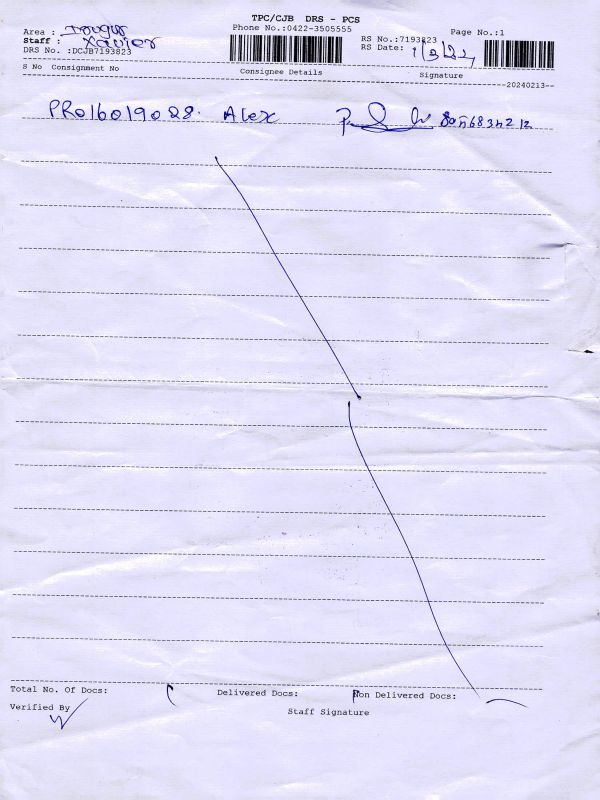 TPC/CJB DRS - PCS
Phone No.:0422-3505555
Page No.:1
Area : Irugur
Staff : Xavier
DRS No. :DCJB7193823
RS No.:7193823
RS Date:
S No Consignment No Consignee Details Signature
20240213
PR016019028. Alex
Total No. Of Docs: Delivered Docs: Non Delivered Docs:
Verified By
Staff Signature